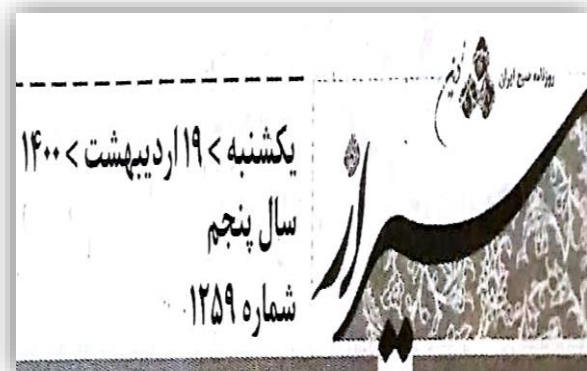 روزنامه صبح ایران
نوین
شیراز
یکشنبه > ۱۹ اردیبهشت > ۱۴۰۰
سال پنجم
شماره ۱۲۵۹